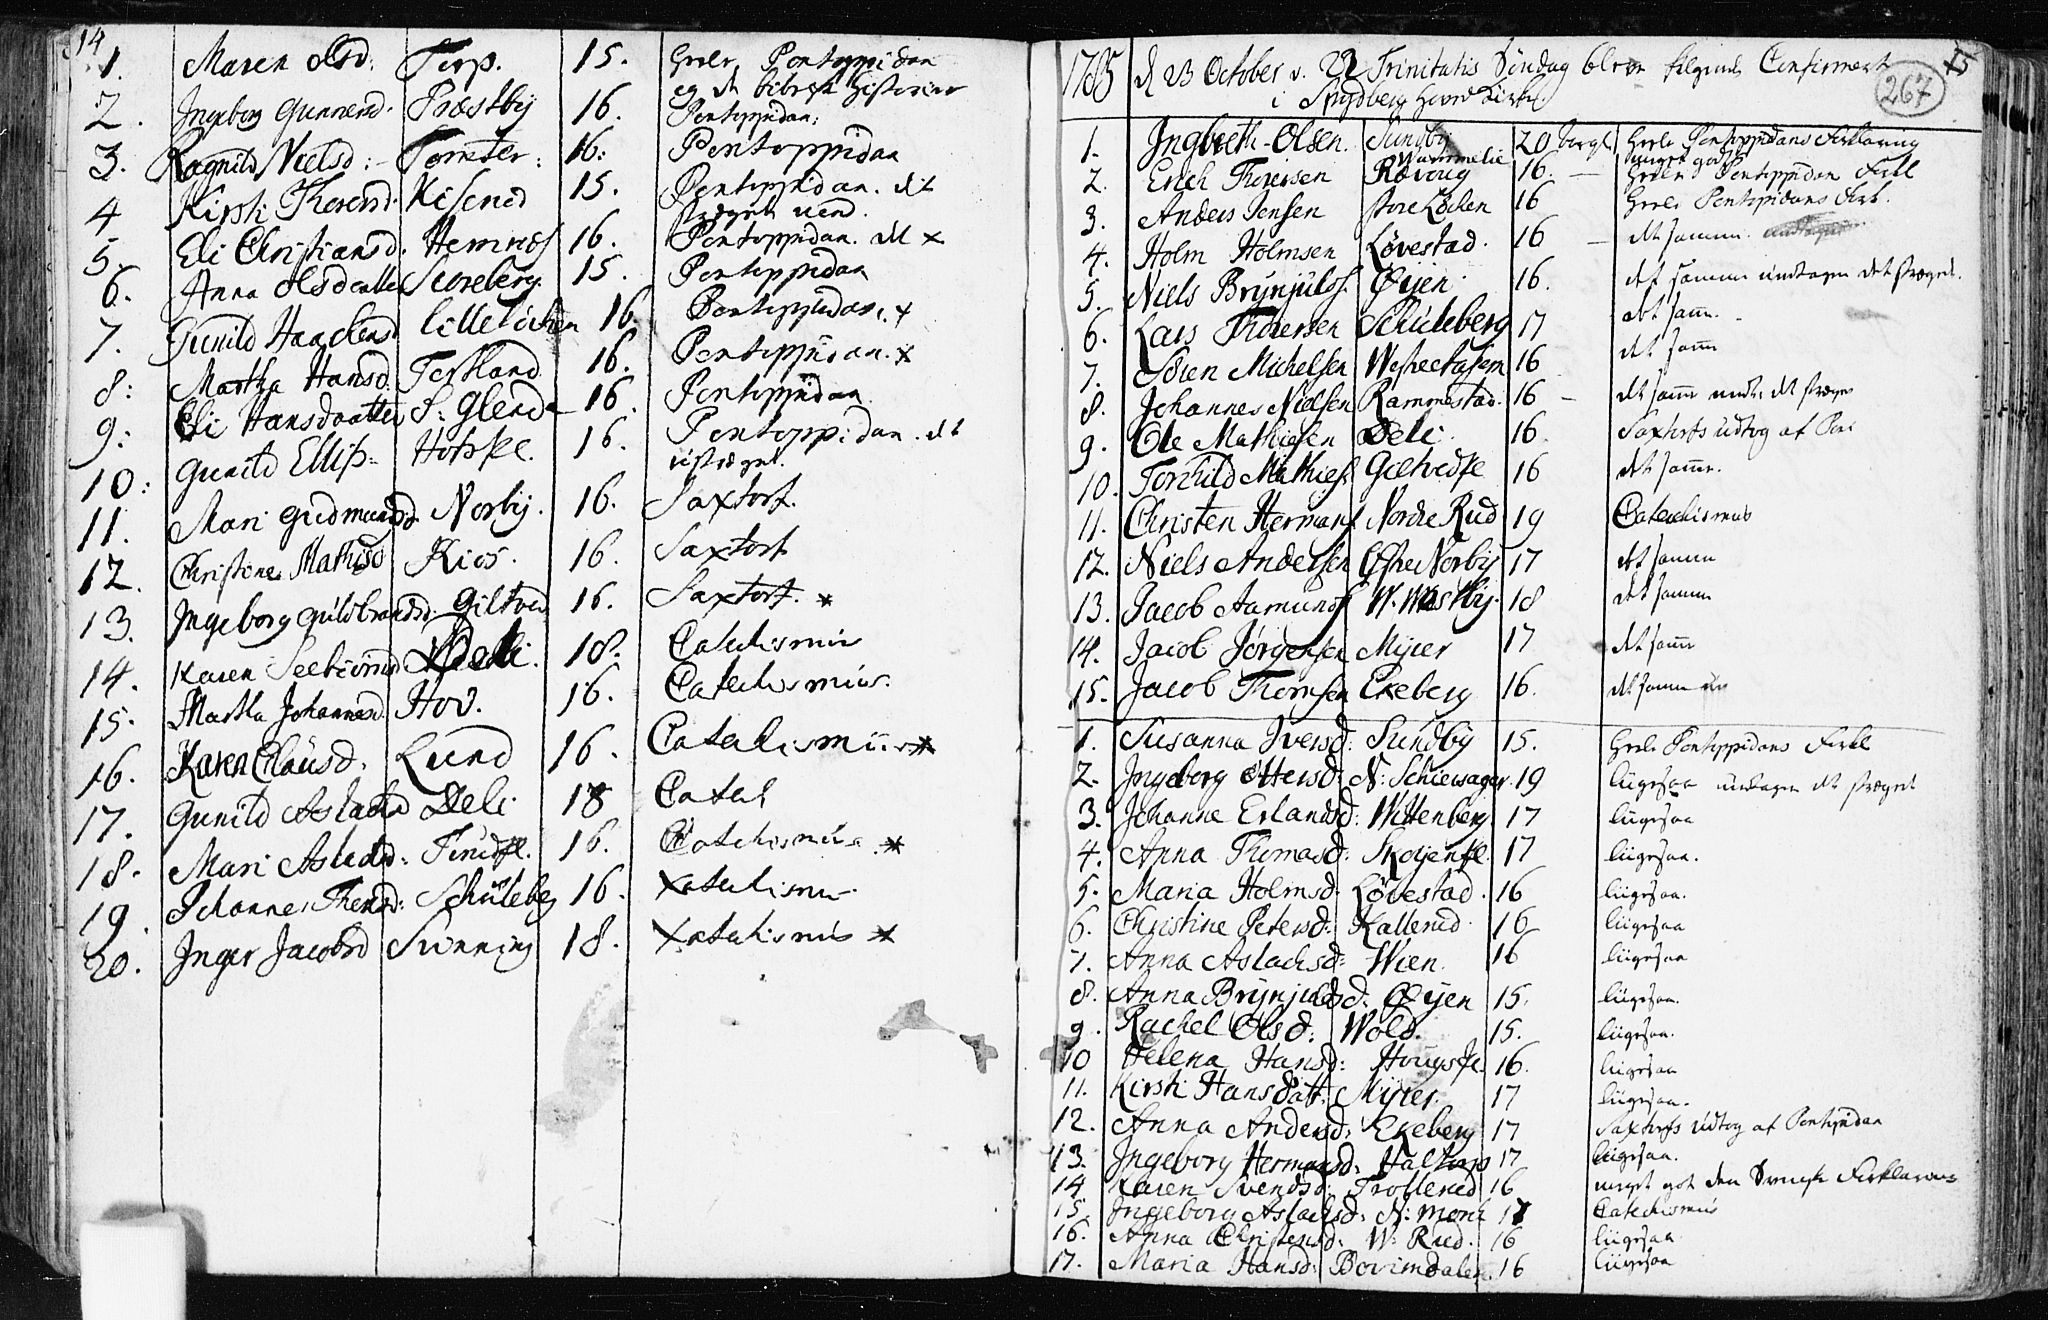 14
1. Maren Olsd: Torp. 15. Heele Pontoppidan
og de bibelske Historier
2. Ingeborg Gunnersd. Præstby 16. Pontoppidan:
3. Ragnild Nielsd: Tomter: 16: Pontoppidan
4 Kirsti Thoresd. Kiserud 15. Pontoppidan. det
5. Eli Christiansd. Hemnæs 16. Pontoppidan. det x
6. Anna Olsdatter Scoreberg. 15. Pontoppidan
7. Gunild Haachensd Lilleløchen 16. Pontoppidan. x
8: Martha Hansd. Tostland 16. Pontoppidan. x
9: Eli Hansdaatter S: Glende 16. Pontoppidan
10: Gunild Ellifs= Hotske. 16. Pontoppidan. det
11. Mari Gudmundsd. Norby. 16. Saxtorf.
12. Christine Mathisd Kios. 16. Saxtorf
13. Ingeborg Guldbrandsd: Giltved 16. Saxtorf. x
14. Karen Seebiørnsd Deli. 18. Catechismus
15. Martha Johannesd. Hov. 16. Catechismus.
16. Karen Clausd. Lund 16. Catechismus x
17. Gunild Aslachsd Deli 18 Catech
18. Mari Aslachsd: 16. Catechismus x
19. Johanne Thoresd: Schuleberg 16. Catechismus
20. Inger Jacobsd Sunning 18. Catechismus x
1785 d 23 October D. 22 Trinitatis Søndag bleve følgende Confirmeret
267
i Spydberg Hoved Kirke.
1. Ingbreth Olsen. Sundby 20 Heele Pontoppidans Forklaring
meget godt
2. Erich Thoresen Rævoug 16. Heele Pontoppidan Forkl
3. Anders Jensen store Løchen 16 Heele Pontopidans Fork.
4. Holm Holmsen Løvestad. 16 det samme.
5. Niels Brynjuls. Øyen 16. det samme undtagen det stregede.
6. Lars Thoresen Schuleberg 17 det samme.
7. Søren Michelsen 16 det samme
8. Johannes Nielsen Rammestad. 16 det samme undt: det
9. Ole Mathiesen Deli. 16. Saxtorfs Udtog af Pont
10. Torkild Mathies. Giltvedse 16 det samme.
11. Christen Hermans. Nordre Rud 19 Catechismus
12. Niels Andersen Østre Norby 17 det samme
13. Jacob Aamunds. W. Westby. 18 det samme
14. Jacob Jørgensen Myrer 17 det samme
15. Jacob Thomsen Ekeberg 16. det samme
1. Susanna Iversd: Sundby 15. Heele Pontoppidans Forkl
2. Ingeborg Ottersd: N: Schiersager. 19 liigesaa undtagen det stregede
3. Johanne Erlandsd: Wittenberg. 17 liigesaa
4. Anna Thomasd: 17 liigesaa.
5. Maria Holmsd: Løvestad. 16 liigesaa.
6. Christine Petersd: Kallerud. 16 liigesaa
7. Anna Aslachsd: Wien. 16 liigesaa
8. Anna Brynjulsd: Øyen 15. liigesaa.
9. Rachel Olsd: Wold. 15. liigesaa.
10 Helena Hansd: 16. liigesaa
11. Kirsti Hansdatt: Myrer. 17 liigesaa.
12. Anna Andersd: Ekeberg 17 Saxtorfs Udtog af Pontopidan
13. Ingeborg Hermansd: Haltorp 17 liigesaa.
14 Karen Svendsd: Trollerud 16 meget got den Forklaring
15. Ingeborg Aslachsd: N: Moni 17 Catechismus
16. Anna Christensd: W: Rud. 16 liigesaa
17. Maria Hansd: Bovimdalen. 16 liigesaa